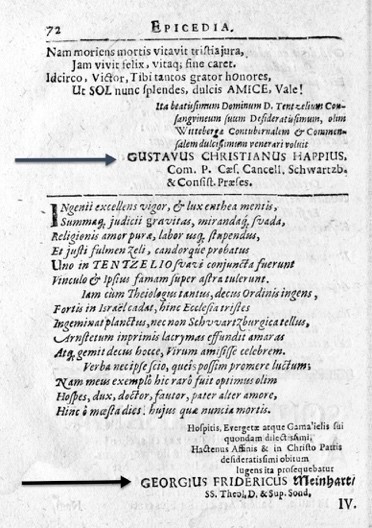 72 EPICEDIA.
Nam moriens mortis vitavit tristia jura,
Jam vivit felix, vitaq; fine caret.
Idcirco, Victor, Tibi tantos grator honores,
Ut SOL nunc splendes, dulcis AMICE, Vale!
Ita beatissimum Dominum D. Tentzelium Con-
sangvineum suum Desideratissimum, olim
Witteberga Contubernalem & Commen-
salem dulcissimum venerari voluit
GUSTAVUS CHRISTIANUS HAPPIUS,
Com. P. Cæs. Cancell. Schwartzb.
& Consist. Præses.
INgenii excellens vigor, & lux enthea mentis,
Summaq; judicii gravitas, mirandaq; svada,
Religionis amor pura, labor usq; stupendus,
Et justi fulmen zeli, candorque probatus
Uno in TENTZELIO svavi conjuncta fuerunt
Vinculo & Ipsius famam super astra tulerunt.
Jam cùm Theologus tantus, decus Ordinis ingens,
Fortis in Israël cadat, hinc Ecclesia tristes
Ingeminat planctus, nec non Schvvartzburgica tellus,
Arnstetum inprimis lacrymas effundit amaras
Atq; gemit decus hocce, Virum amisisse celebrem.
Verba necipse scio, queis possim promere luctum;
Nam meus exemplò hic rarò fuit optimus olim
Hospes, dux, doctor, fautor, pater alter amore,
Hinc ô mæsta dies! hujus quæ nuncia mortis.
Hospitis, Evergetæ atque Gamalielis sui
quondam dilectissimi,
Hactenus Affinis & in Christo Patris
desideratissimi obitum
lugens ita prosequebatur
GEORGIUS FRIDERICUS Meinhart/
SS. Theol. D. & Sup. Sond.
IV.